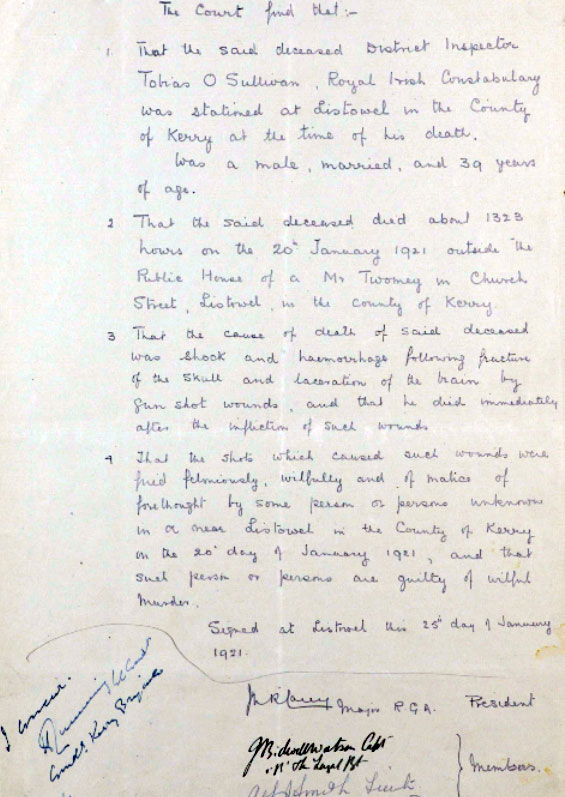 The Court find that :-
1 That the said deceased District Inspector
Tobias O Sullivan, Royal Irish Constabulary
was stationed at Listowel in the County
of Kerry at the time of his death.
Was a male, married, and 39 years
of age.
2 That the said deceased died about 1323
hours on the 20th January 1921 outside the
Public House of a Mr Twomey in Church
Street, Listowel, in the County of Kerry.
3 That the cause of death of said deceased
was shock and haemorrhage following fracture
of the skull and laceration of the brain by
gun shot wounds, and that he died immediately
after the infliction of such wounds
4 That the shots which caused such wounds were
fired feloniously, wilfully and of malice of
forethought by some person or persons unknown
in or near Listowel in the County of Kerry
on the 20th day of January 1921, and that
such person or persons are guilty of wilful
Murder.
Signed at Listowel this 25th day of January
1921.
I concur.
Comdt. Kerry Brigade
Major R.G.A. President
Capt
Lieut
Members.